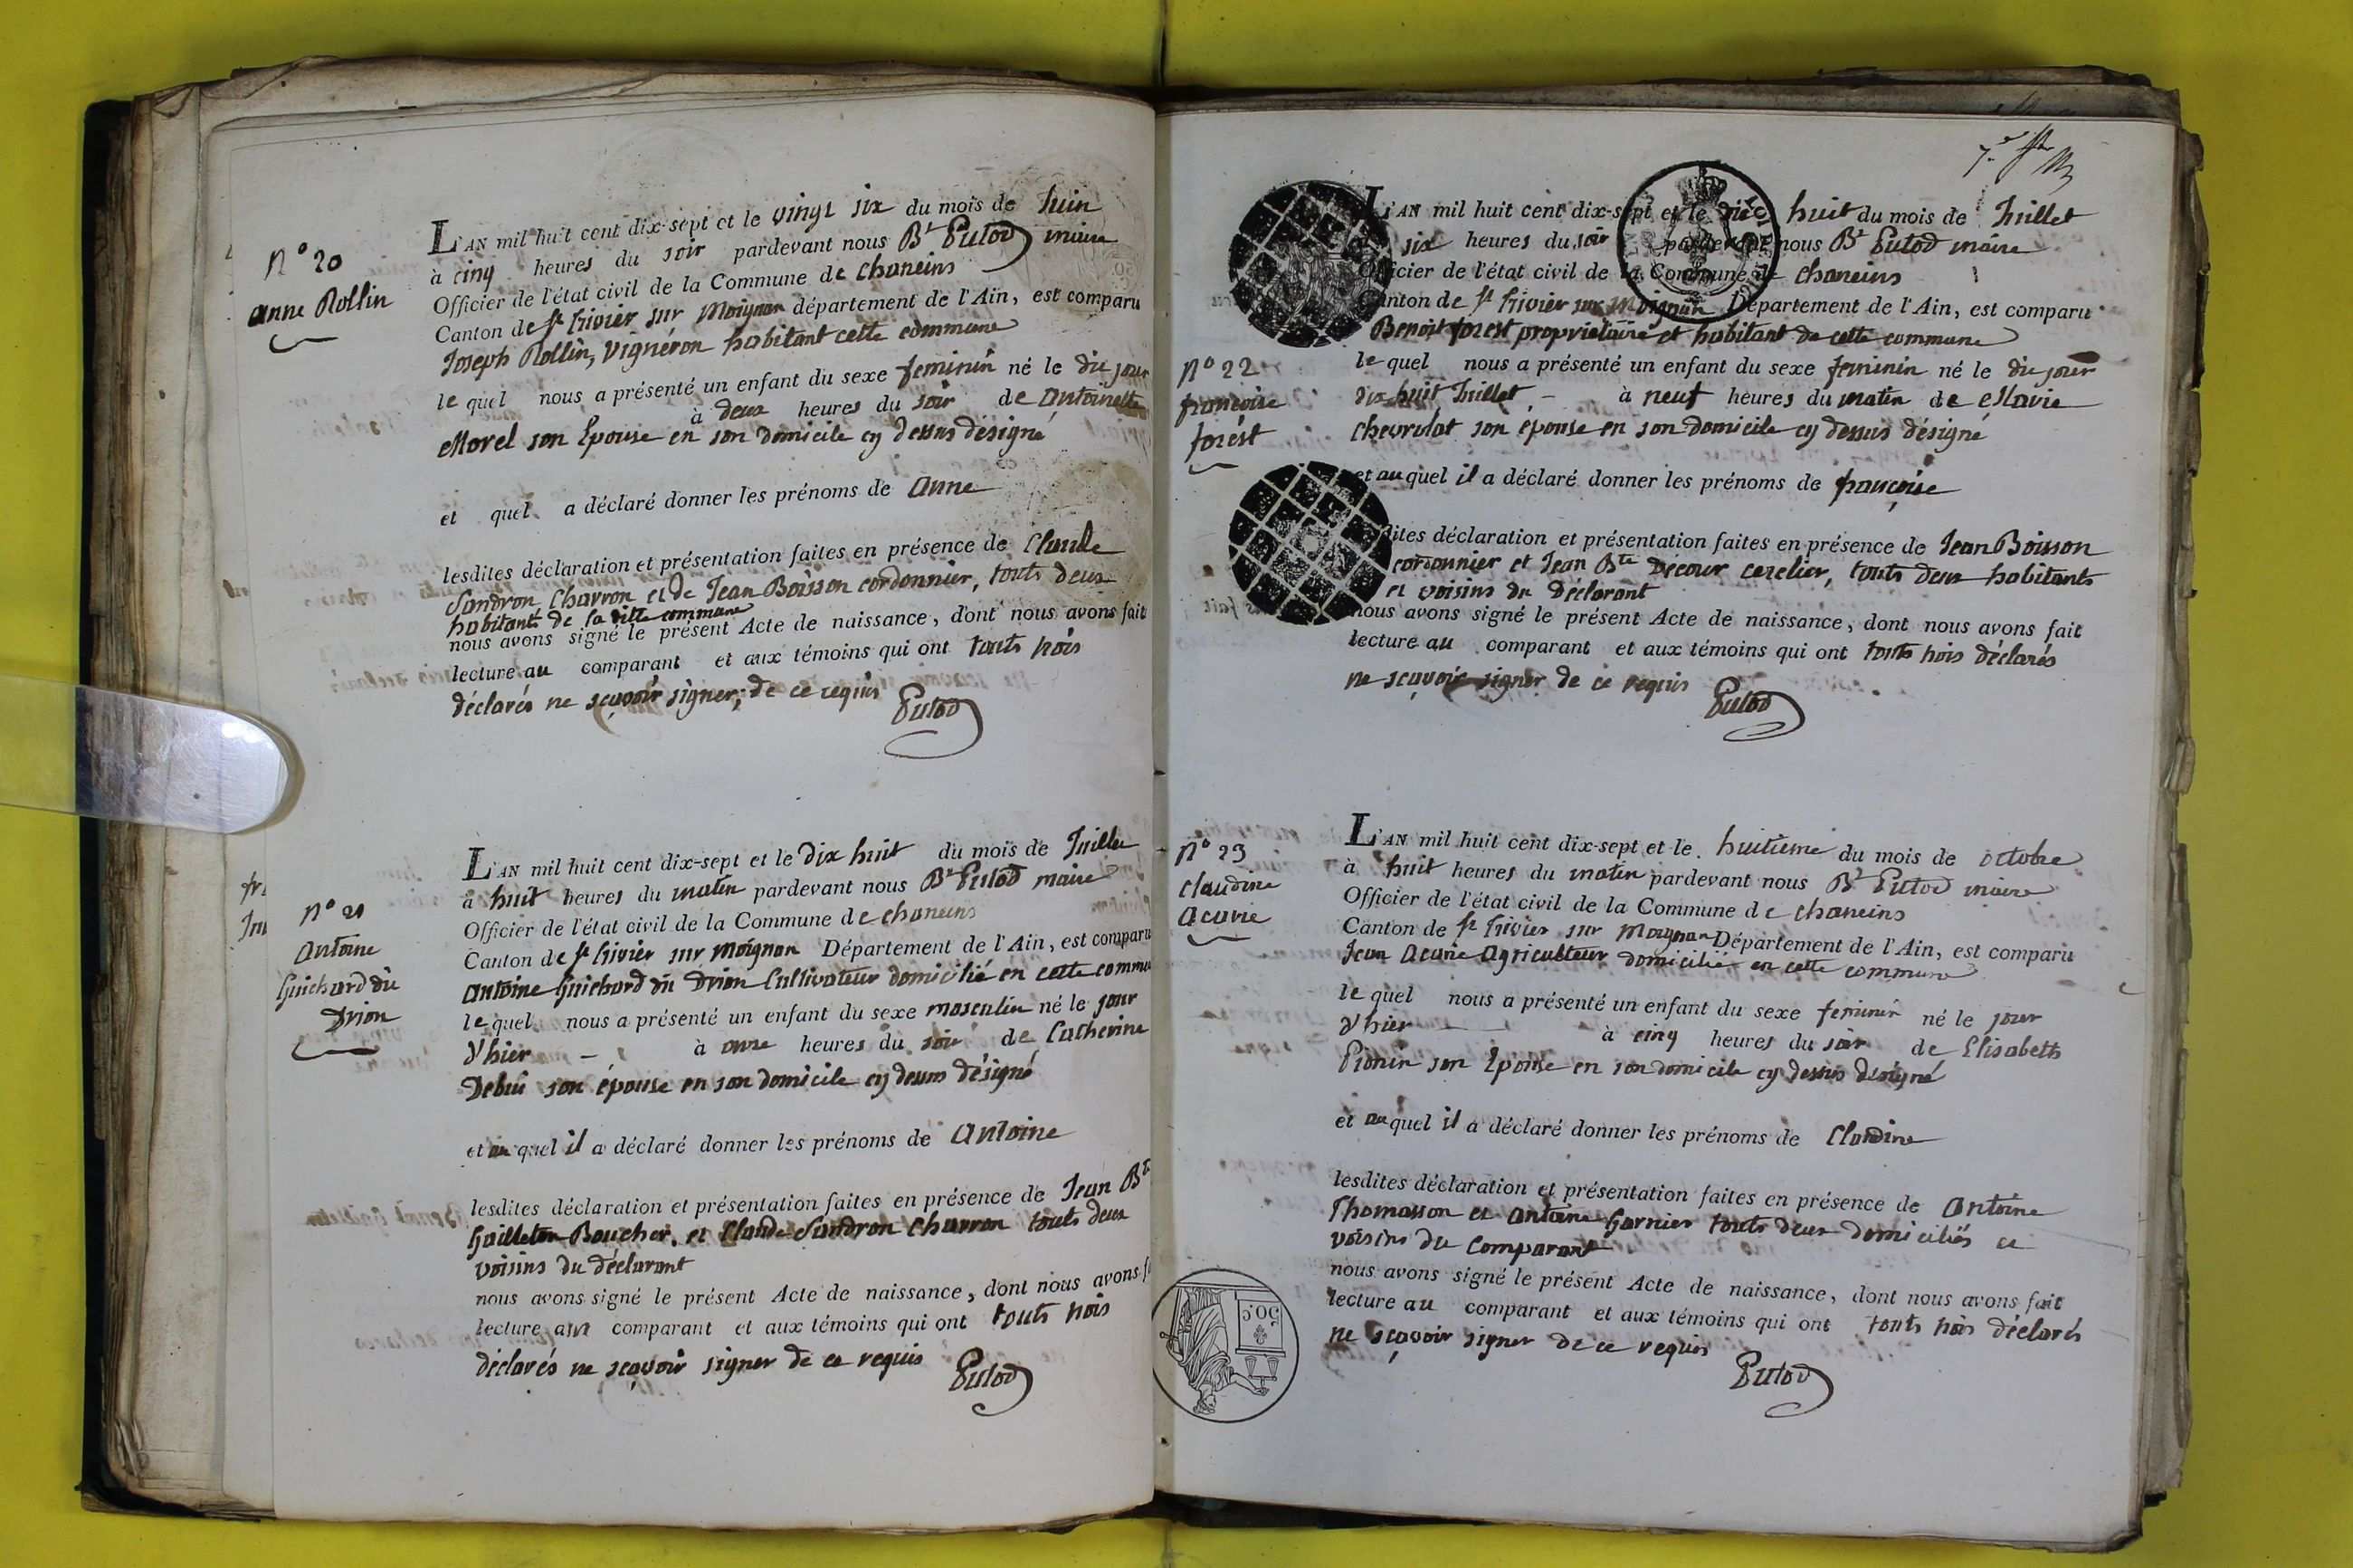 N° 20
Anne Rollin
L'AN mil huit cent dix-sept et le vingt six du mois de Juin
à cinq heures du soir pardevant nous Bt Putod maire
Officier de l'état civil de la Commune de Chaneins
Canton de St trivier sur Moignan département de l'Ain, est comparu
Joseph Rollin, Vignéron habitant cette commune
le quel nous a présenté un enfant du sexe feminin né le du jour
à deux heures du soir de Antoinette
Morel son Epouse en son domicile cy dessus désigné
et quel a déclaré donner les prénoms de Anne
lesdites déclaration et présentation faites en présence de Claude
Sandron Charron et de Jean Boisson cordonnier, touts deux
habitants de la ditte commune
nous avons signé le présent Acte de naissance, dont nous avons fait
lecture au comparant et aux témoins qui ont touts trois
déclarés ne sçavoir signer, de ce requis
Putod
N° 21
Antoine
Guichard dù
Drion
L'AN mil huit cent dix-sept et le dix huit du mois de Juillet
à huit heures du matin pardevant nous Bt Putod maire
Officier de l'état civil de la Commune de Chaneins
Canton de St trivier sur Moignan Département de l'Ain, est comparu
Antoine Guichard dù Drion Cultivateur domicilié en cette commu
le quel nous a présenté un enfant du sexe masculin né le jour
d'hier à onze heures du soir de Catherine
son épouse en son domicile cy dessus désigné
et au quel il a déclaré donner les prénoms de Antoine
lesdites déclaration et présentation faites en présence de Jean Bte
Gailleton Boucher, et Claude Sandron Charron touts deux
voisins du déclarant
nous avons signé le présent Acte de naissance, dont nous avons f
lecture aux comparant et aux témoins qui ont touts trois
déclarés ne sçavoir signer de ce requis
Putod
N° 22
françoise
forest
L'AN mil huit cent dix-sept et le dix huit du mois de Juillet
six heures du soir pardevant nous Bt Putod maire
Officier de l'état civil de la Commune de Chaneins
Canton de St trivier sur Moignan Département de l'Ain, est comparu
Benoit forest propriétaire et habitant de cette commune
le quel nous a présenté un enfant du sexe feminin né le du jour
dix huit Juillet à neuf heures du matin de Marie
Chevrolat son épouse en son domicile cy dessus désigné
et au quel il a déclaré donner les prénoms de françoise
dites déclaration et présentation faites en présence de Jean Boisson
cordonnier et Jean Bte Décour cerclier, touts deux habitants
et voisins du déclarant
nous avons signé le présent Acte de naissance, dont nous avons fait
lecture au comparant et aux témoins qui ont touts trois déclarés
ne sçavoir signer de ce requis
Putod
N° 23
Claudine
Acarie
L'AN mil huit cent dix-sept et le huitieme du mois de octobre
à huit heures du matin pardevant nous Bt Putod maire
Officier de l'état civil de la Commune de Chaneins
Canton de St trivier sur Moignan Département de l'Ain, est comparu
Jean Acarie Agriculteur domicilié en cette commune
le quel nous a présenté un enfant du sexe feminin né le jour
d'hier à cinq heures du soir de Elisabeth
Pionin son Epouse en son domicile cy dessus désigné
et au quel il a déclaré donner les prénoms de Claudine
lesdites déclaration et présentation faites en présence de Antoine
Thomasson et Antoine Garnier touts deux domiciliés et
voisins du Comparant
nous avons signé le présent Acte de naissance, dont nous avons fait
lecture au comparant et aux témoins qui ont touts trois déclarés
ne sçavoir signer de ce requis
Putod
50 c